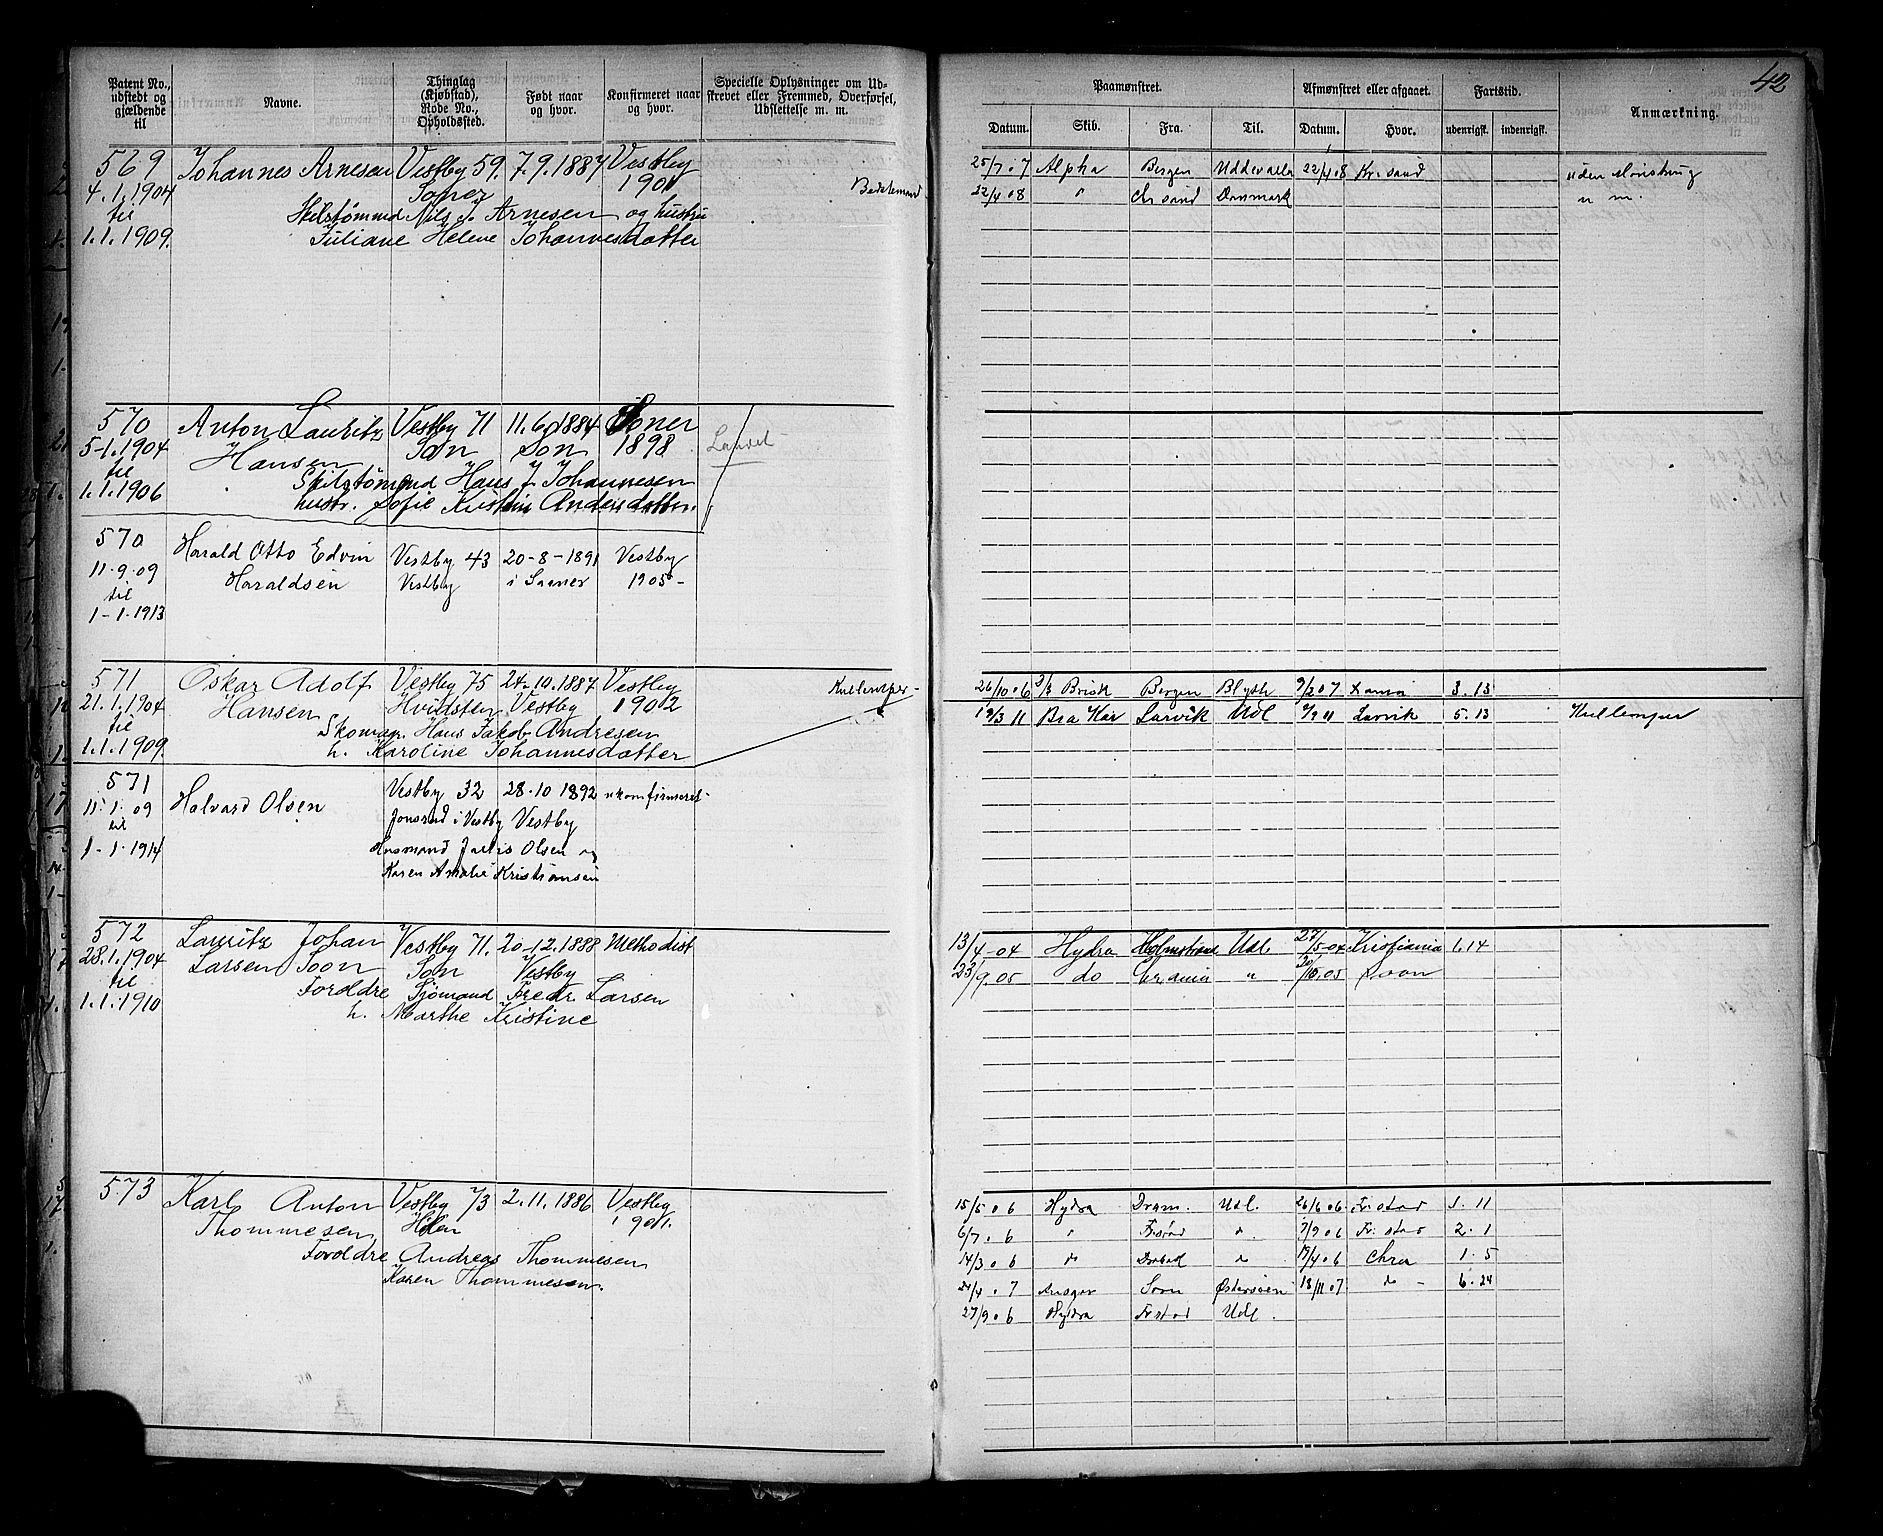 42
Patent No., udstedt og gjældende til
Navne.
Thinglag (Kjøbstad), Rode No., Opholdssted.
Født naar og hvor.
Konfirmeret naar og hvor.
Specielle Oplysninger om Udstrevet eller Fremmed, Overførsel, Udslettelse m. m.
Paamønstret.
Afmønstret eller afgaaet.
Fartstid.
Anmærkning.
Datum. Skib. Fra. Til. Datum. Hvor. udenrigsk. indenrigsk.
569 Johannes Arnesen Vestby 59. 7.9.1887 Vestby
4.1.1904 Soner 1901
til Nils Arnesen og hustru
1.1.1909. Juliane Helene Johannesdatter
25/7.07 Alpha Bergen Uddevalla 22/4 08 Kr.sand uden
22/4 08 " Chr sand Danmark
570 Anton Lauritz Vestby 71 11.6.1884 Soner
5-1.1904 Hansen Son Son 1898
til Hans J. Johannesen
1.1.1906 hustr. Sofie Kristin Andersdatter.
570 Harald Otto Edvin Vestby 43 20-8-1891 Vestby
11.9.09 Haraldsen Vestby i Saaner 1905-
til
1-1-1913
571 Oskar Adolf Vestby 75 24.10.1887 Vestby
21.1.1904 Hansen Hvidsten Vestby 1902
til Skoman. Hans Jakob Andresen
1.1.1909. h. Karoline Johannesdatter
Kullemper-
26/10 06 Brisk Bergen Blyth 9/2 07 3.13
19/3 11 Bra Kar Larvik Udl 9/9 11 Larvik 5.13 Kullemper
571 Halvard Olsen Vestby 32 28-10 1892 ukonfirmeret-
11.1.09 i Vestby Vestby
til Husmand Olsen og
1-1-1914 Karen Amalie Kristiansen
572 Lauritz Johan Vestby 71. 20-12.1888 Methodist
28.1.1904 Larsen Soon Son Vestby
til Foroldre Sjömand Fredr. Larsen
1.1.1910 h. Marthe Kristine
13/4-04 Hydra Holmstrand Udl 27/5-04 Kristiania 1.14
23/9.05 do Kr.ania " 20/10.05 Soon
573 Karl Anton Vestby 73 2.11.1886 Vestby
Thommesen Hölen 1901.
Foroldre Andreas Thommesen
Karen Thommesen.
15/5 06 Hydra Dram. Udl. 26/6 06 Fr.stad 1.11
6/7.06 " " 7/9 06 Fr. stad 2.1
14/3 06 do do 19/4 06 Chra 1.5
24/4.07 Ansgar Soon Østersøen 18/11 07 do - 6.24
27/9 06 Hydra Fr.stad Udl.